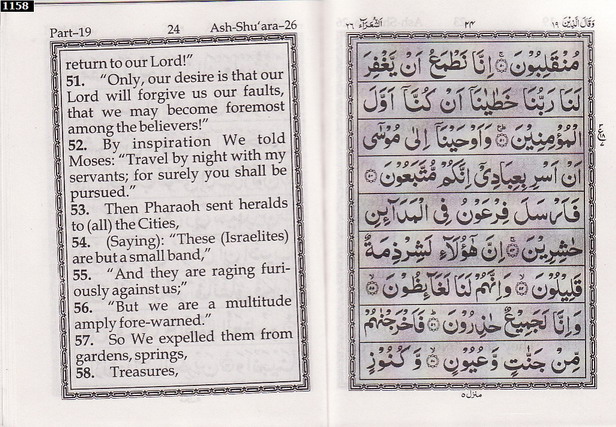 1158
Part–19 24 Ash-Shu‘ara–26
return to our Lord!”
51. “Only, our desire is that our
Lord will forgive us our faults,
that we may become foremost
among the believers!”
52. By inspiration We told
Moses: “Travel by night with my
servants; for surely you shall be
pursued.”
53. Then Pharaoh sent heralds
to (all) the Cities,
54. (Saying): “These (Israelites)
are but a small band,”
55. “And they are raging furi-
ously against us;”
56. “But we are a multitude
amply fore-warned.”
57. So We expelled them from
gardens, springs,
58. Treasures,
وَقَالَ الَّذِيْنَ ١٩ ٢٤ الشُّعَرَآء ٢٦
مُنْقَلِبُوْنَ ۝ اِنَّا نَطْمَعُ اَنْ يَّغْفِرَ
لَنَا رَبُّنَا خَطٰيٰنَآ اَنْ كُنَّآ اَوَّلَ
الْمُؤْمِنِيْنَ ۝ وَاَوْحَيْنَآ اِلٰى مُوْسٰٓى
اَنْ اَسْرِ بِعِبَادِيْٓ اِنَّكُمْ مُّتَّبَعُوْنَ ۝
فَاَرْسَلَ فِرْعَوْنُ فِى الْمَدَآئِنِ
حٰشِرِيْنَ ۝ اِنَّ هٰٓؤُلَآءِ لَشِرْذِمَةٌ
قَلِيْلُوْنَ ۝ وَاِنَّهُمْ لَنَا لَغَآئِظُوْنَ ۝
وَاِنَّا لَجَمِيْعٌ حٰذِرُوْنَ ۝ فَاَخْرَجْنٰهُمْ
مِّنْ جَنّٰتٍ وَّعُيُوْنٍ ۝ وَّكُنُوْزٍ
منزل ٥